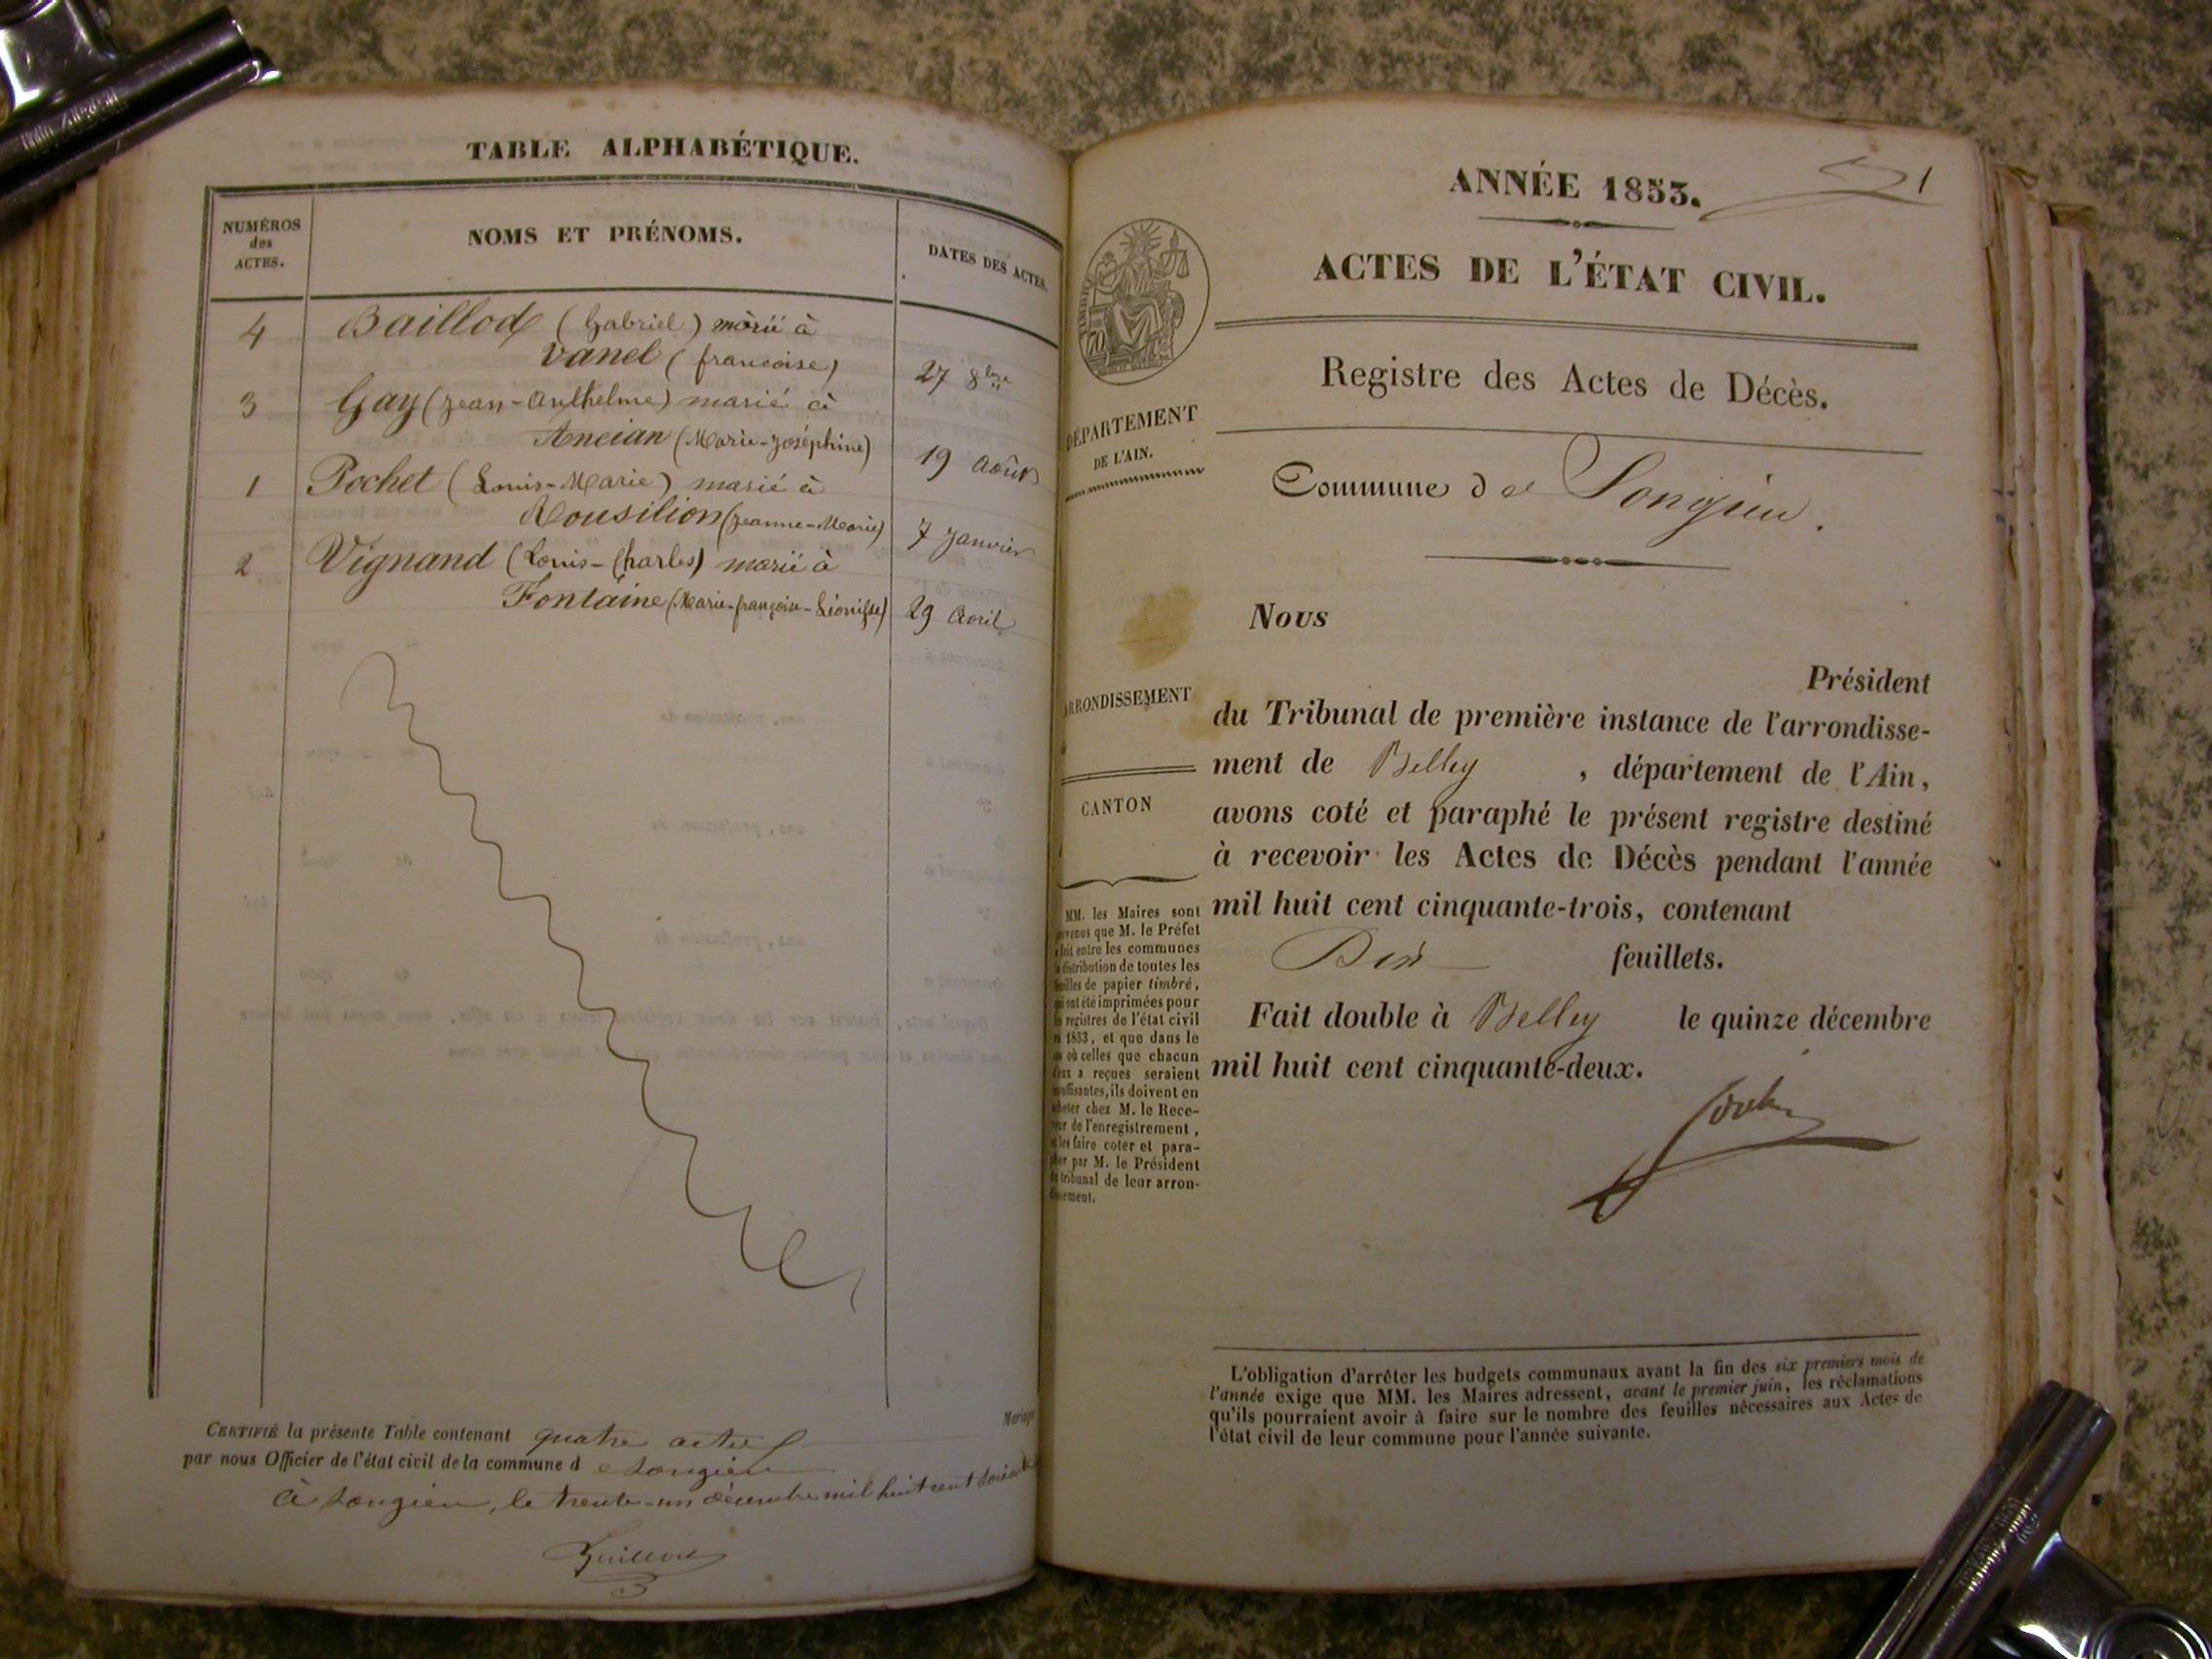 TABLE ALPHABÉTIQUE.
NUMÉROS
des
ACTES.
NOMS ET PRÉNOMS.
DATES DES ACTES.
4 Baillod (Gabriel) marié à
Vanel (francoise) 27 8bre
3 Gay (Jean-Anthelme) marié à
Ancian (Marie-Joséphine) 19 Août
1 Pochet (Louis-Marie) marié à
Rousilion (Jeanne-Marie) 7 Janvier
2 Vignand (Louis-Charles) marié à
Fontaine (Marie-françoise-Léonisse) 29 Avril
Mariage
CERTIFIÉ la présente Table contenant quatre actes
par nous Officier de l'état civil de la commune de Songieu
à Songieu, le trente-un décembre mil huit cent
ANNÉE 1853.
1
ACTES DE L'ÉTAT CIVIL.
Registre des Actes de Décès.
DÉPARTEMENT
DE L'AIN.
Commune de Songieu.
Nous
Président
du Tribunal de première instance de l'arrondisse-
ment de Belley, département de l'Ain,
avons coté et paraphé le présent registre destiné
à recevoir les Actes de Décès pendant l'année
mil huit cent cinquante-trois, contenant
Dix feuillets.
Fait double à Belley le quinze décembre
mil huit cent cinquante-deux.
ARRONDISSEMENT
CANTON
MM. les Maires sont
que M. le Préfet
fait entre les communes
distribution de toutes les
de papier timbré,
ont été imprimées pour
registres de l'état civil
1853, et que dans le
où celles que chacun
a reçues seraient
ils doivent en
chez M. le Rece-
de l'enregistrement,
les faire coter et para-
par M. le Président
tribunal de leur arron-
L'obligation d'arrêter les budgets communaux avant la fin des six premiers mois de
l'année exige que MM. les Maires adressent, avant le premier juin, les réclamations
qu'ils pourraient avoir à faire sur le nombre des feuilles nécessaires aux Actes de
l'état civil de leur commune pour l'année suivante.